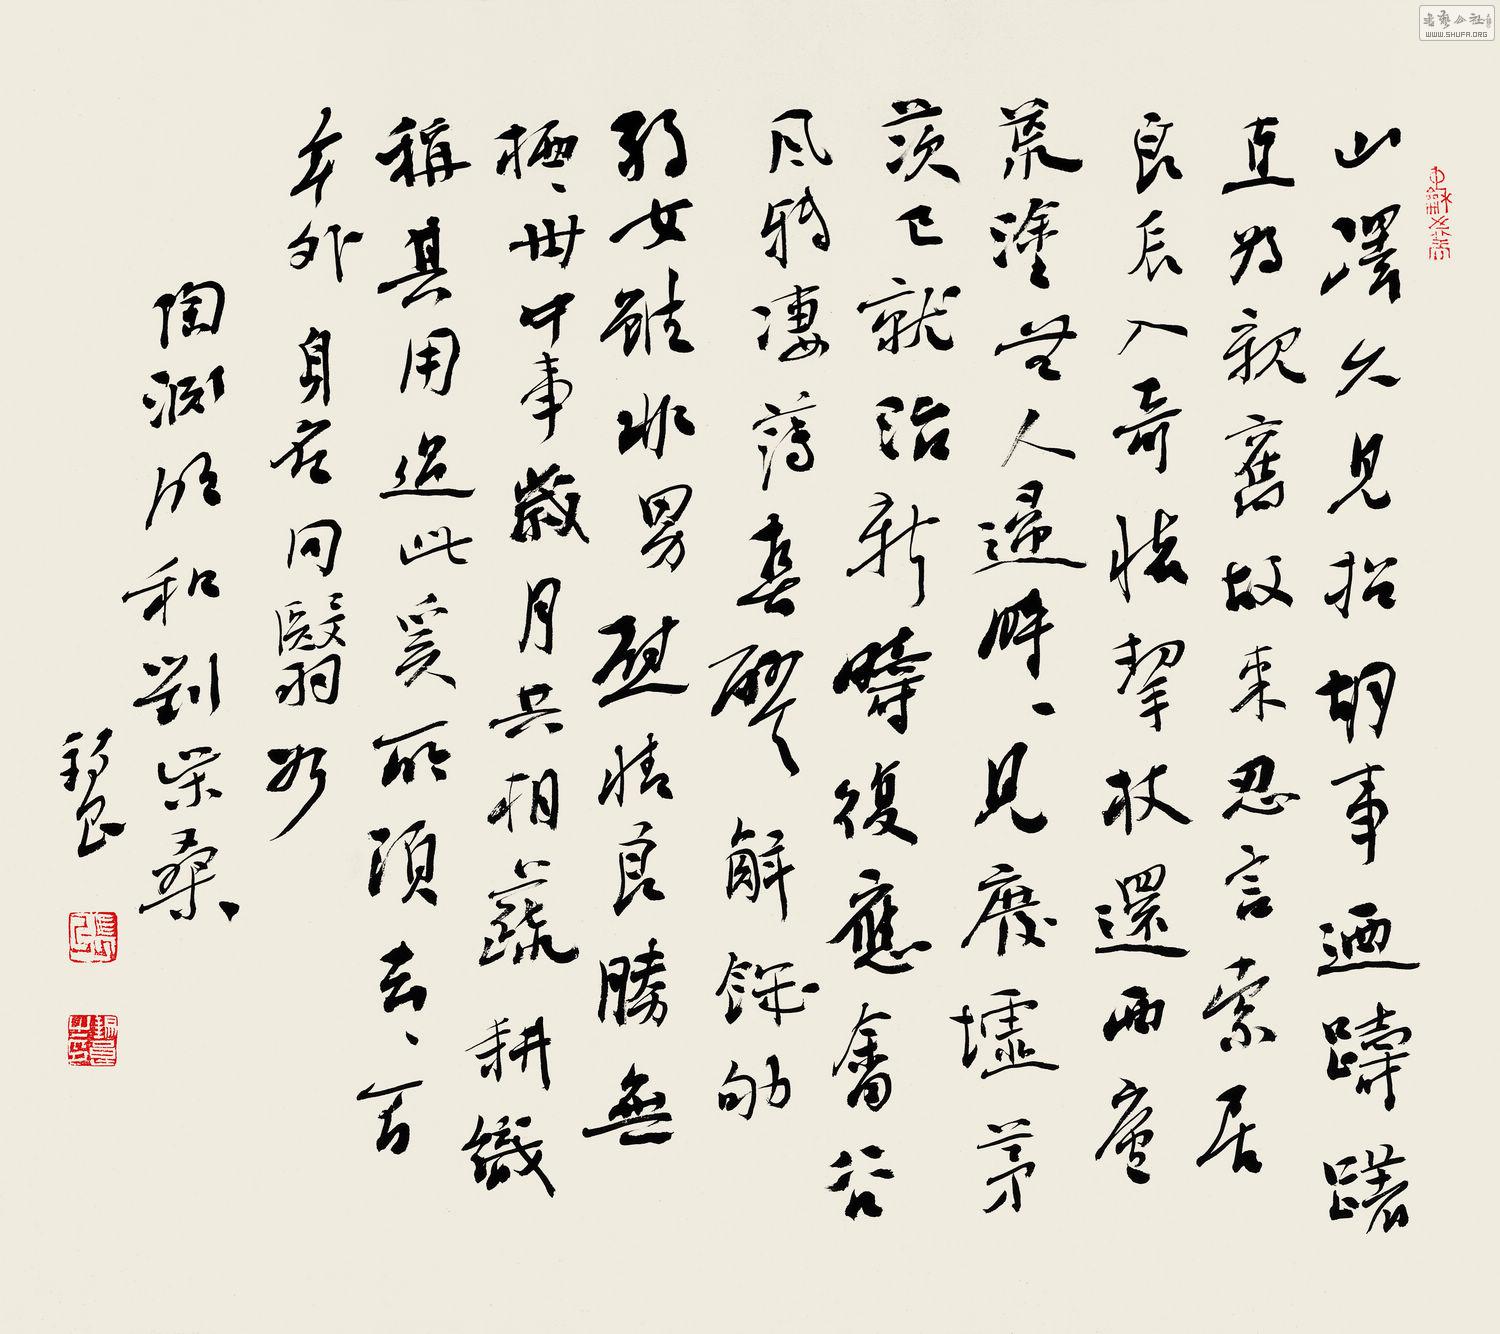 山澤久見招胡事迺躊躇
直為親舊故未忍言索居
良辰入奇懷挈杖還西廬
荒塗無人歸時、見廢墟茅
茨已就治新疇復應畬谷
風轉淒薄春醪解飢劬
弱女雖非男慰情良勝無
栖、世中事歲月共相蔬耕織
稱其用過此奚所須去、百
年外身名同翳如
陶淵明和劉柴桑
錫良
張
書藝公社
WWW.SHUFA.ORG